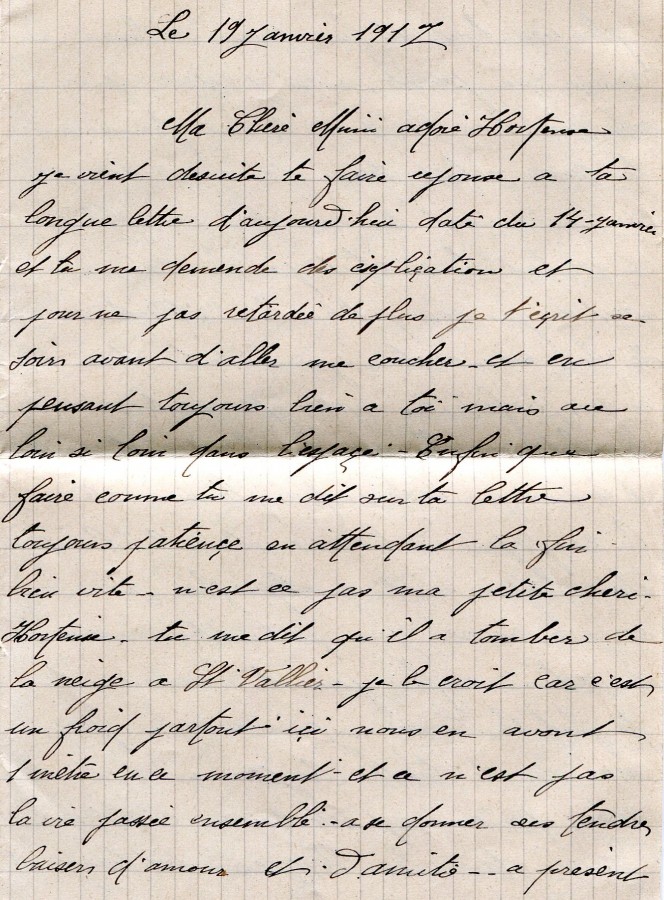 Le 19 Janvier 1917
Ma Cheré Mimi adoré Hortense
je vient desuite te faire reponse a ta
longue lettre d'aujourd'hui daté du 14-Janvier
et tu me demende des expliçation et
pour ne pas retardée de plus je t'ecrit ce
soir avant d'aller me coucher - et en
pensant toujours bien a toi mais au
loin si loin dans l'espaçe - Enfin que
faire comme tu me dit sur ta lettre
toujours patiençe en attendant la fin
bien vite - n'est ce pas ma petite cheri-
Hortense - tu me dit qu'il a tomber de
la neige a St Vallier - je le croit car c'est
un froid partout içi nous en avont
1 mètre en ce moment - et ce n'est pas
la vie passée ensemble - a se donner ses tendres
baisers d'amour et d'amitié - - a present